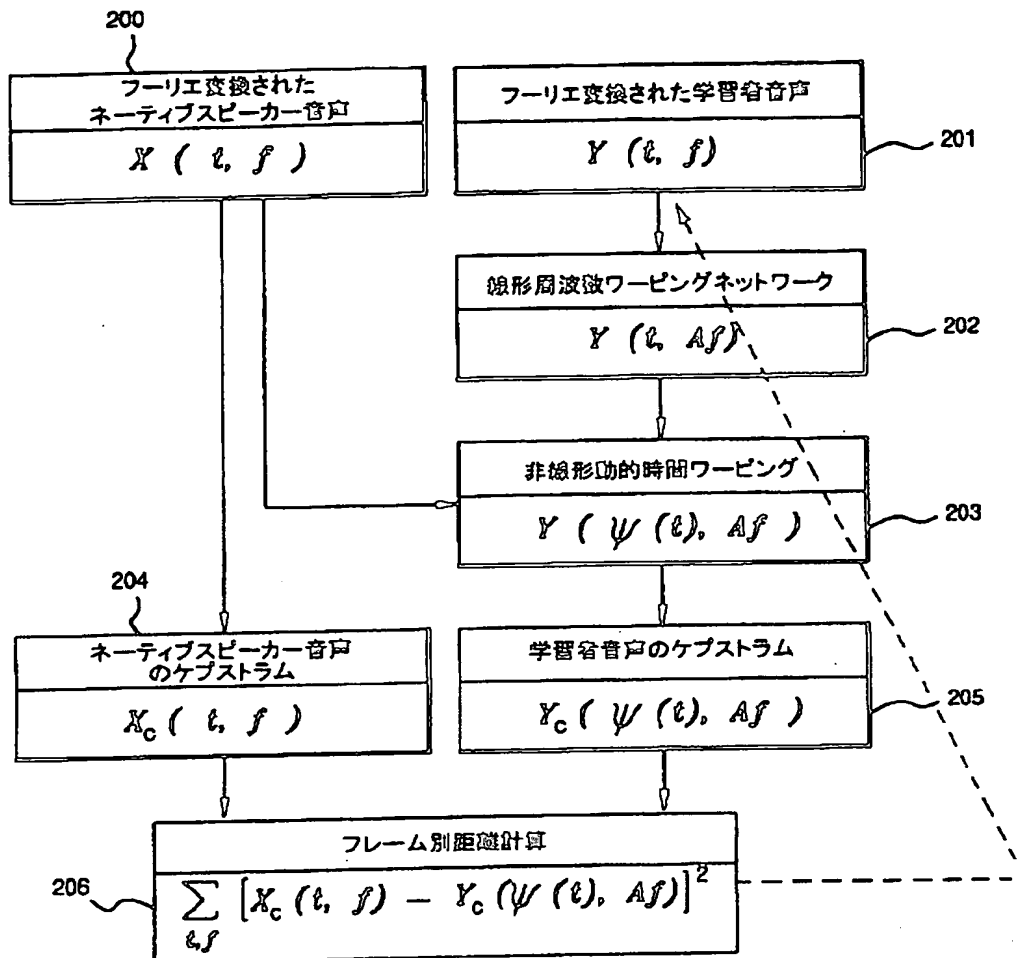 200
フーリエ変換された
ネーティブスピーカー音声
X ( t, f )
フーリエ変換された学習者音声
Y (t, f)
201
線形周波数ワーピングネットワーク
Y (t, Af)
202
非線形動的時間ワーピング
Y ( ψ (t), Af )
203
204
ネーティブスピーカー音声
のケプストラム
X_c ( t, f )
学習者音声のケプストラム
Y_c ( ψ (t), Af )
205
フレーム別距離計算
206
∑_{t,f} [X_c (t, f) − Y_c (ψ (t), Af)]^2